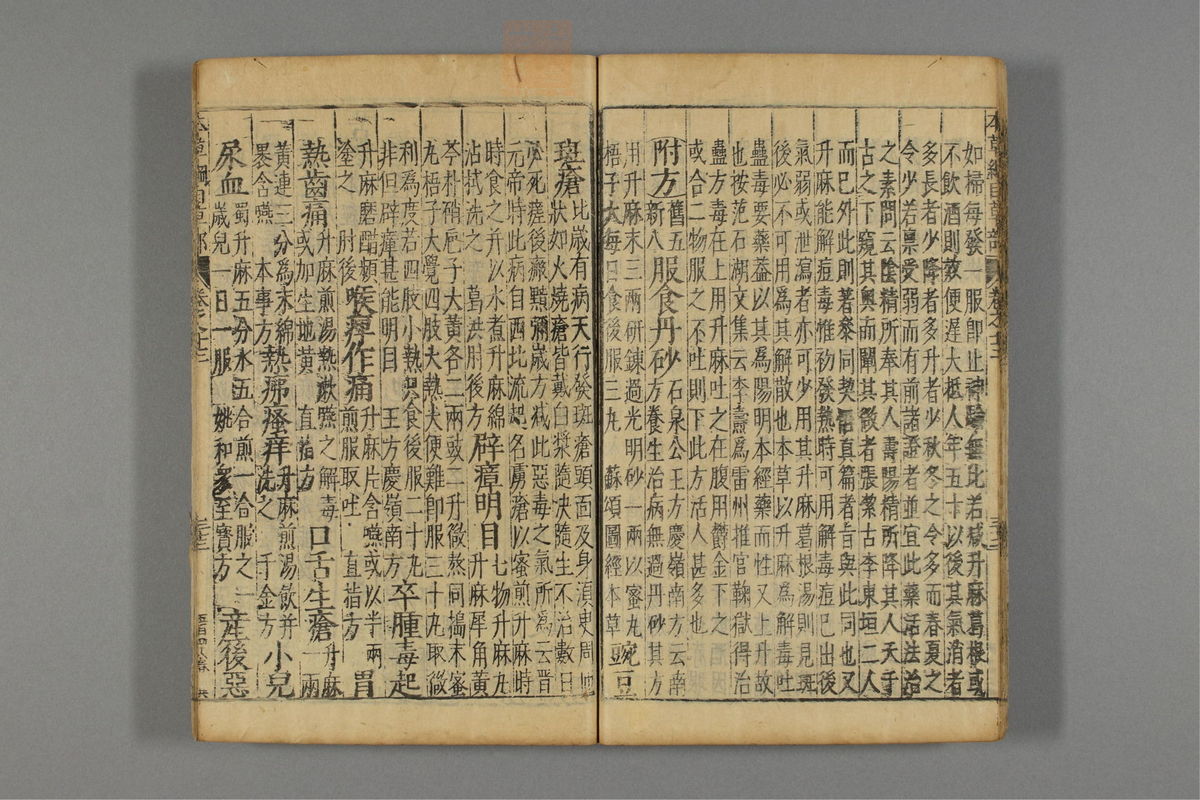 如掃每發一服即止神驗無比若咸升麻葛根或
不飲酒則效便遲大抵人年五十以後其氣消者
多長者少降者多升者少秋冬之令多而春夏之
令少若禀受弱而有前諸證者並宜此藥活法治
之素問云陰精所奉其人壽陽精所降其人夭千
古之下窺其奧而闡其微者張潔古李東垣二人
而已外此則著參同契悟真篇者旨與此同也又
升麻能解痘毒惟初發熱時可用解毒痘已出後
氣弱或泄瀉者亦可少用其升麻葛根湯則見斑
後必不可用為其解散也本草以升麻為解毒吐
蠱毒要藥葢以其為陽明本經藥而性又上升故
也按范石湖文集云李壽爲雷州推官鞠獄得治
蠱方毒在上用升麻吐之在腹用鬱金下之
或合二物服之不吐則下此方活人甚多也
附方舊五新八服食丹砂石泉公王方慶嶺南方云南方養生治病無過丹砂其方
用升麻末三兩研錬過光明砂一兩以蜜丸梧子大每日食後服三丸 蘇頌圖經本草 豌豆
斑瘡比歲有病天行發斑瘡頭面及身須臾周匝
狀如火燒瘡皆戴白漿隨決隨生不治數日
必死瘥後瘢黯彌歲方减此惡毒之氣所為云晋
元帝時此病自西北流起名虜瘡以蜜煎升麻時
時食之并以水煮升麻綿
沾拭洗之 葛洪肘後方 辟瘴明目七物升麻丸升麻犀角黃
芩朴硝巵子大黃各二兩豉二升微熬同搗末蜜
丸梧子大覺四肢大熱大便難即服三十丸取微
利為度若四肢小熱只食後服二十丸
非但辟瘴甚能明目 王方慶嶺南方 卒腫毒起
升麻磨醋頻
塗之 肘後 喉痺作痛升麻片含嚥或以半兩煎服取吐 直指方 胃
熱齒痛升麻煎湯熱漱嚥之解毒或加生地黃 直指方 口舌生瘡升麻一兩
黃連三分為末綿
裹含嚥 本事方 熱痱瘙痒升麻煎湯飲并洗之 千金方 小兒
尿血蜀升麻五分水五合煎一合服之一歲兒一日一服 姚和衆至寶方 產後惡